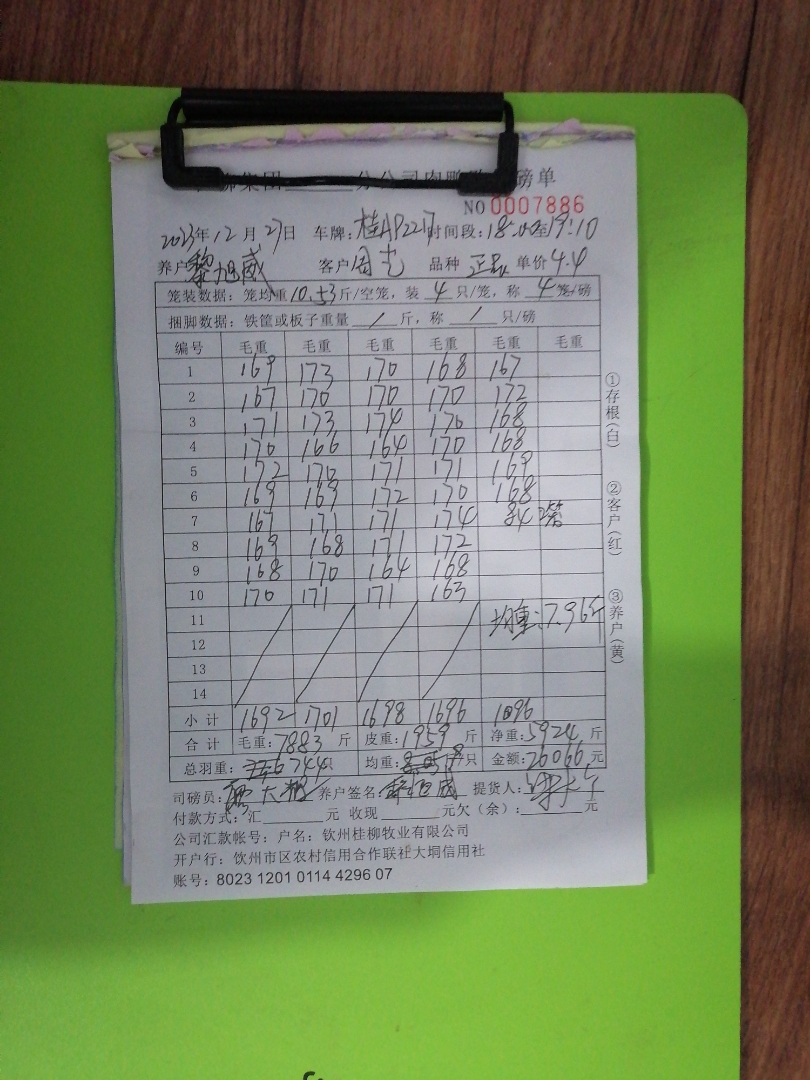 集团 分公司肉鸭 磅单
NO 0007886
2023年12月27日 车牌:桂AP227 时间段:18:00至19:10
养户黎旭威 客户周 品种 正品 单价4.4
笼装数据: 笼均重10.53斤/空笼, 装 4 只/笼, 称 4 笼/磅
捆脚数据: 铁筐或板子重量 / 斤, 称 / 只/磅
编号 毛重 毛重 毛重 毛重 毛重 毛重
1 169 173 170 168 167
2 167 170 170 170 172
3 171 173 174 170 168
4 170 166 164 170 168
5 172 170 171 171 169
6 169 169 172 170 168
7 167 171 171 174 84 2笼
8 169 168 171 172
9 168 170 164 168
10 170 171 171 163
11 均重:7.96斤
12
13
14
小计 1692 1701 1698 1696 1096
合计 毛重:7883 斤 皮重:1959 斤 净重:5924 斤
总羽重: 744只 均重: 只 金额:26066元
司磅员: 养户签名: 提货人:
付款方式:汇 元 收现 元欠(余): 元
公司汇款帐号: 户名: 钦州桂柳牧业有限公司
开户行: 钦州市区农村信用合作联社大垌信用社
账号: 8023 1201 0114 4296 07
①存根(白)
②客户(红)
③养户(黄)